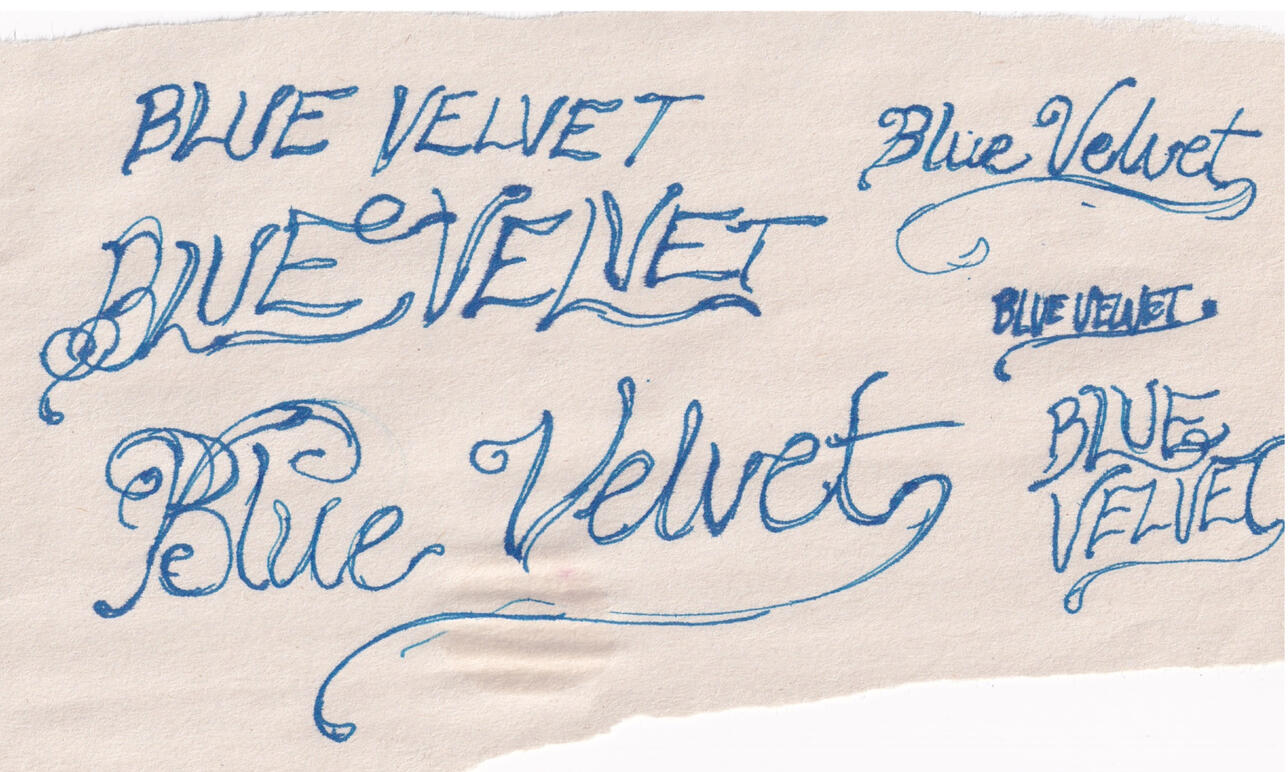 BLUE VELVET
Blue Velvet
BLUE VELVET
BLUE VELVET
Blue Velvet
BLUE
VELVET